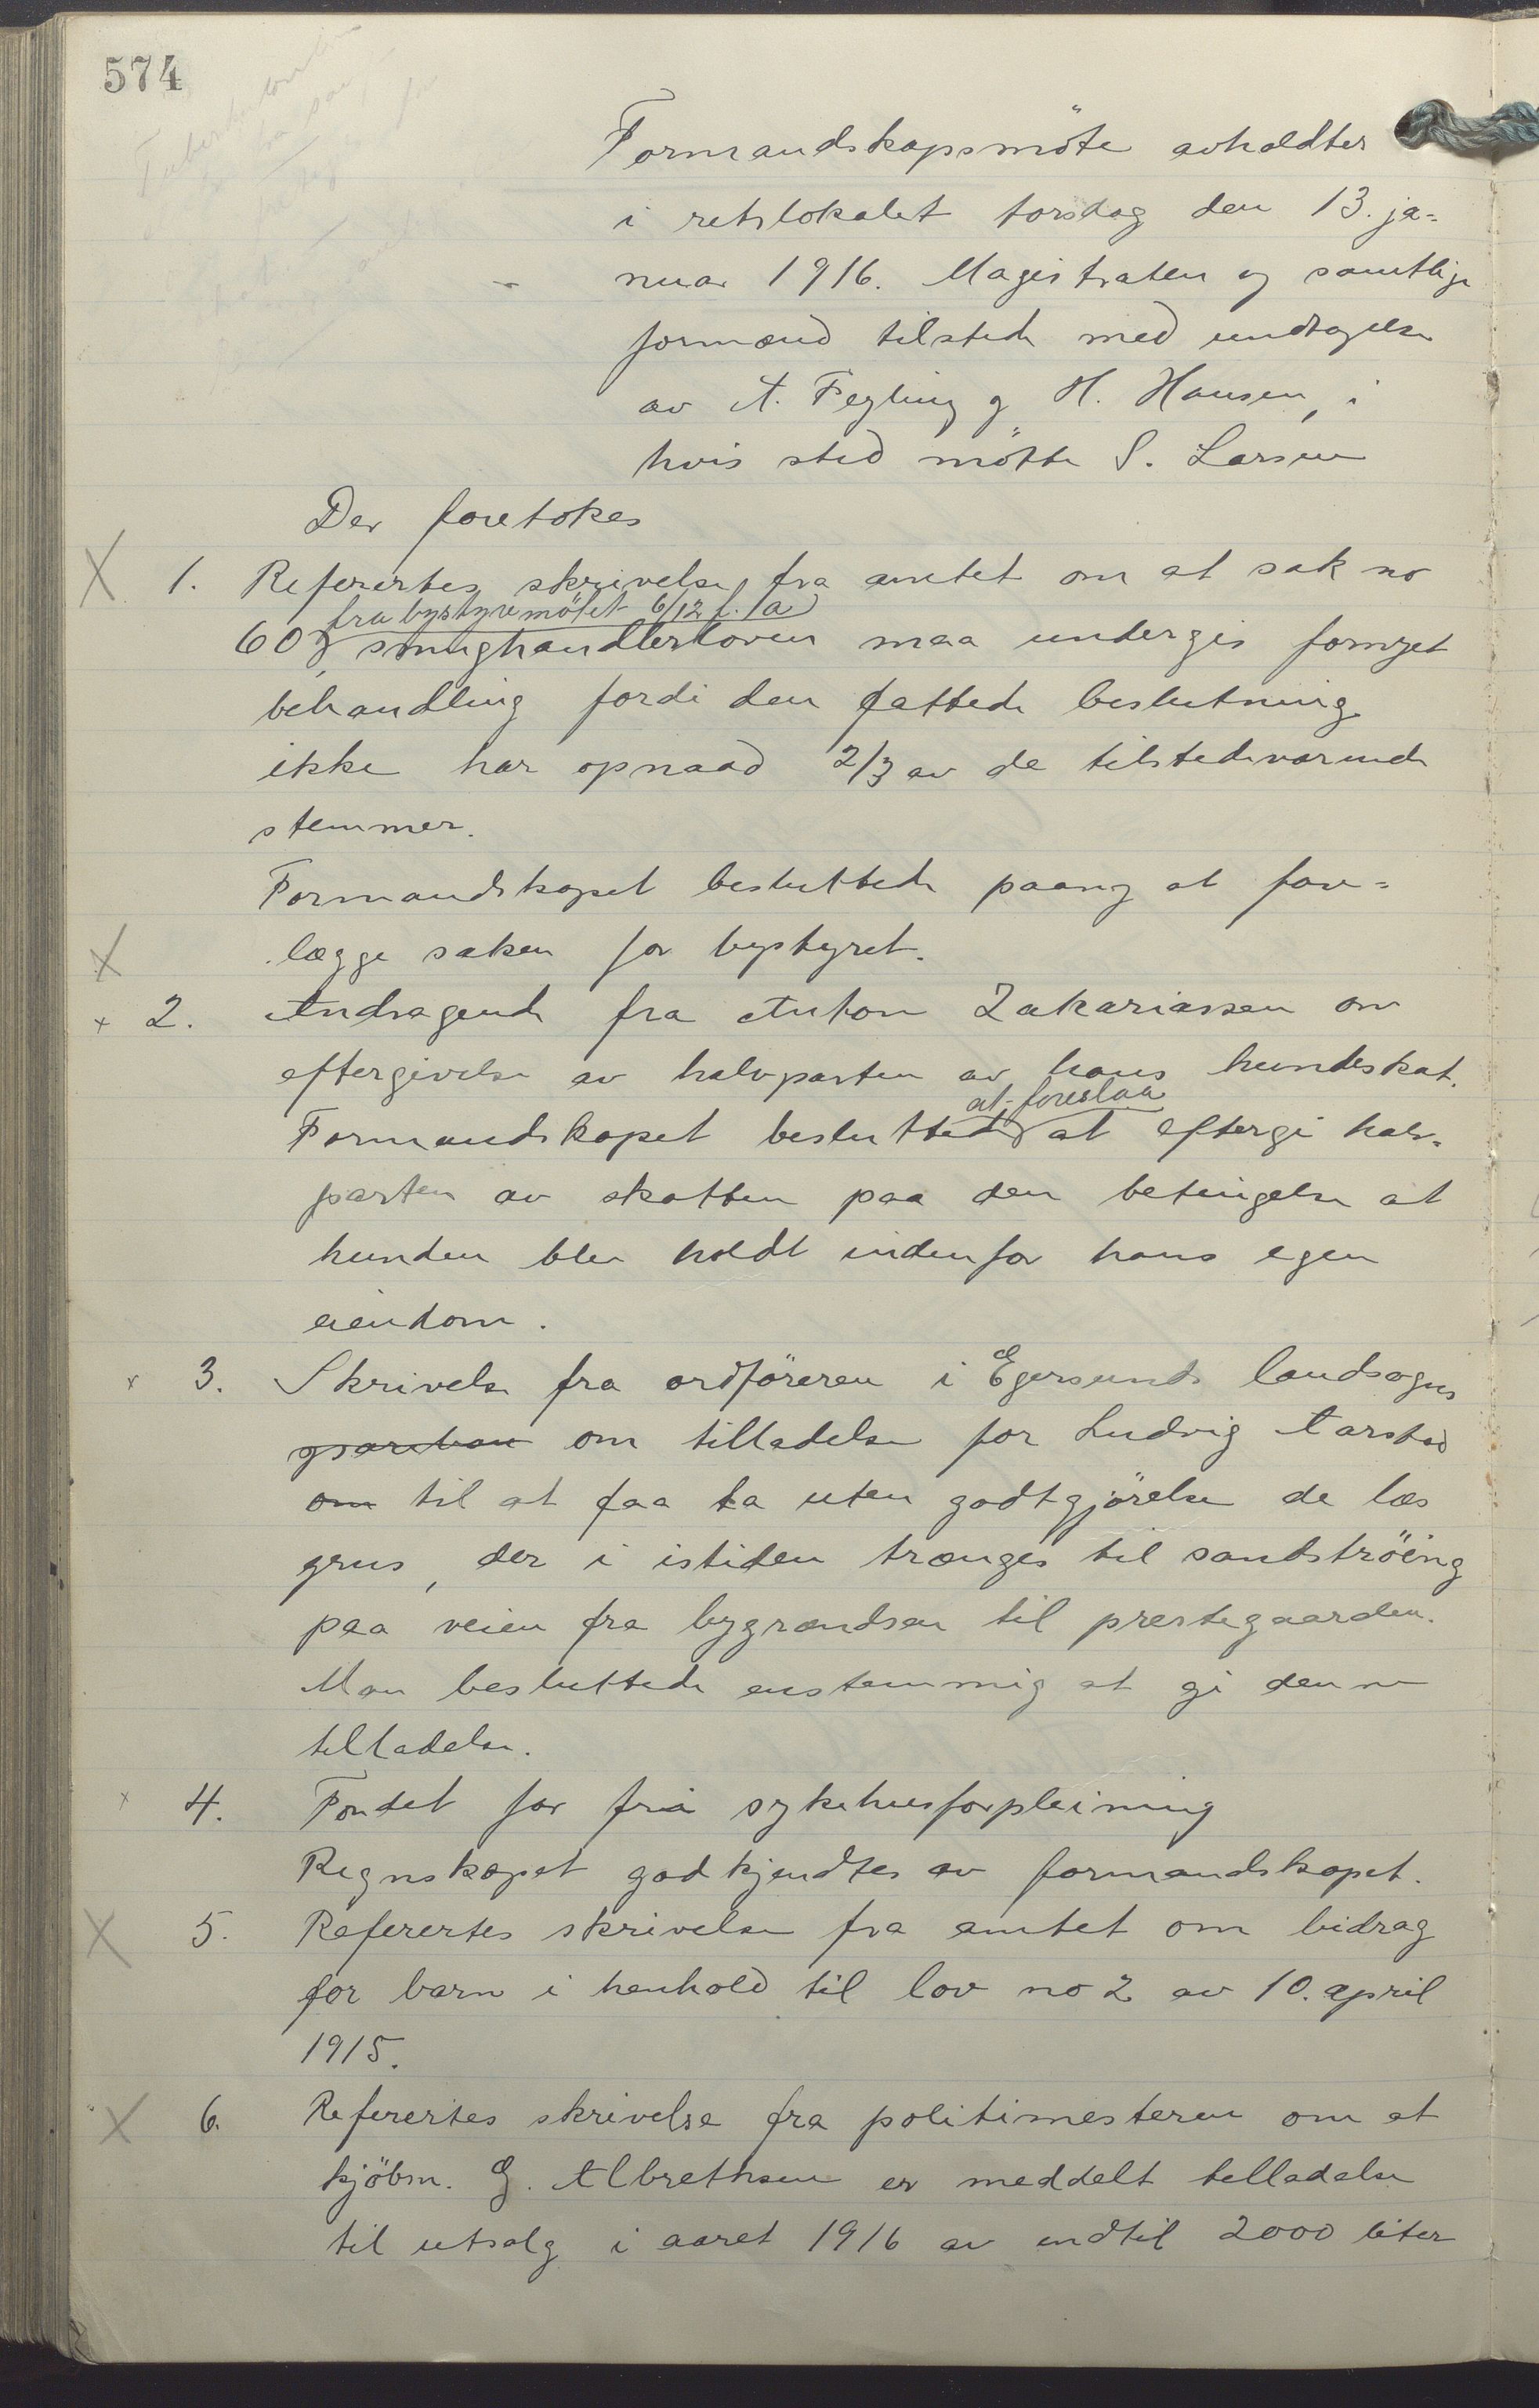 574
Formandskapsmöte avholdtes
i retslokalet torsdag den 13. ja=
nuar 1916. Magistraten og samtlige
formænd tilstede med undtagelse
av A. Feyling og H. Hansen, i
hvis sted mötte S. Larsen
Der foretokes
1. Referertes skrivelse fra amtet om at sak no
fra bystyremötet 6/12 f. a
60, smughandlerloven maa undergis fornyet
behandling fordi den fattede beslutning
ikke har opnaad 2/3 av de tilstedeværende
stemmer.
Formandskapet besluttede paany at fore=
lægge saken for bystyret.
2. Andragende fra Anton Zakariassen om
eftergivelse av halvparten av hans hundeskat.
at foreslaa
Formandskapet besluttede at eftergi halv=
parten av skatten paa den betingelse at
hunden blev holdt indenfor hans egen
eiendom.
3. Skrivelse fra ordföreren i Egersunds landsogns
om tilladelse for Ludvig Aarstad
om til at faa ta uten godtgjörelse de læs
grus, der i istiden trænges til sandströing
paa veien fra bygrændsen til prestegaarden.
Man besluttede enstemmig at gi denne
tilladelse.
4. Fondet for fri sykehusforpleining
Regnskapet godkjendtes av formandskapet.
5. Referertes skrivelse fra amtet om bidrag
for barn i henhold til lov no 2 av 10. april
1915.
6. Referertes skrivelse fra politimesteren om at
kjöbm. G. Albrethsen er meddelt tilladelse
til utsalg i aaret 1916 av indtil 2000 liter